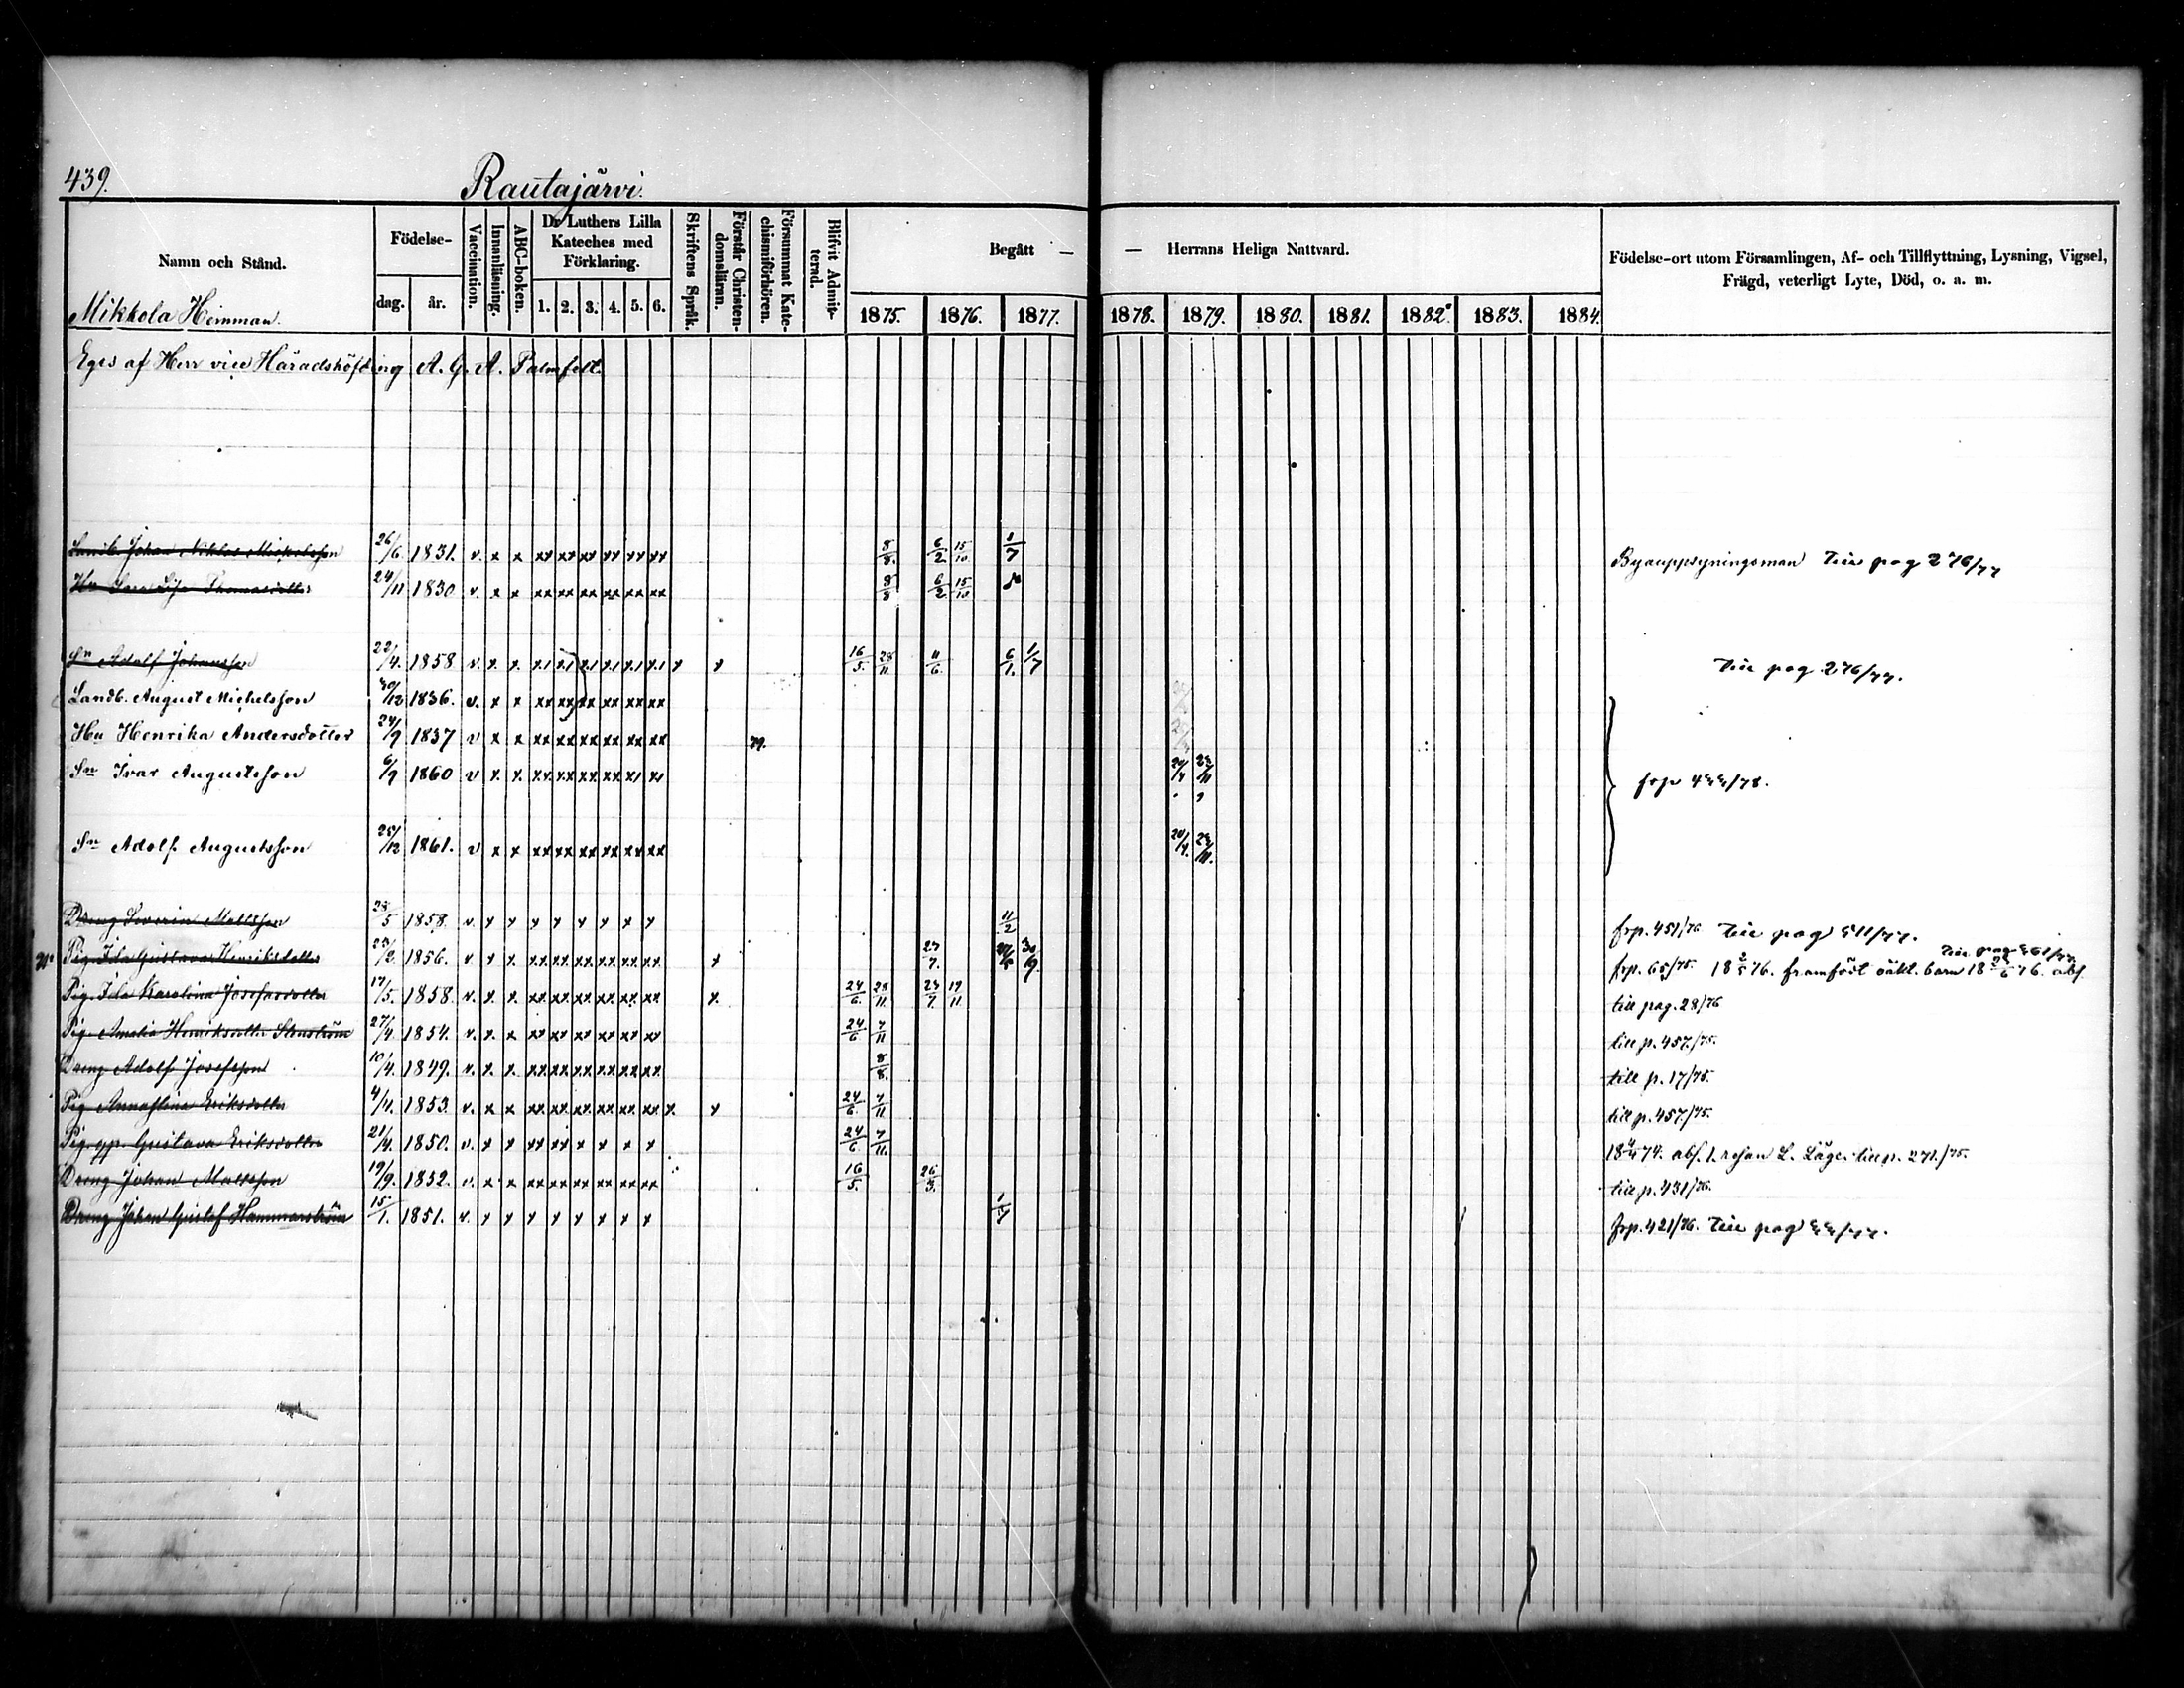 439.
Rautajärvi.
Namn och Stånd.
Födelse-
dag. år.
Vaccination.
Innanläsning.
ABC-boken.
Dr Luthers Lilla Kateches med Förklaring.
1. 2. 3. 4. 5. 6.
Skriftens Språk.
Förstår Christendomsläran.
Försummat Katechismiförhören.
Blifvit Admitterad.
Begått — — Herrans Heliga Nattvard.
1875. 1876. 1877. 1878. 1879. 1880. 1881. 1882. 1883. 1884.
Födelse-ort utom Församlingen, Af- och Tillflyttning, Lysning, Vigsel,
Frägd, veterligt Lyte, Död, o. a. m.
Mikkola Hemman.
Eges af Herr vice Häradshöfding A. G. A. Palmfelt.
Landb. Johan Niklas Michelsson 26/6 1831. v. x x xx xx xx xx xx xx 8/8. 6/2 15/10 1/7 Byauppsyningsman till pag 276/77
Hu Sara Lisa Thomasdotter 24/11 1830 v. x x xx xx xx xx xx xx 8/8 6/2 15/10
Sn Adolf Johansson 22/4. 1858 v. x x 16/5. 28/11 11/6. 6/1. 1/7 till pag 276/77.
Landb. August Michelsson 30/12 1836. v. x x xx xx xx xx xx xx
Hu Henrika Andersdotter 24/9 1837 v x x xx xx xx xx xx xx
Sn Ivar Augustsson 6/9 1860 v x x
Sn Adolf Augustsson 25/12 1861. v x x xx xx xx xx xx xx
Dreng Severin Mattsson 28/5 1858. v. x x x x x x x x 11/2 frp. 451/76 till pag 511/77.
Pig. Ida Gustava Henriksdotter 1856. v. x x xx xx xx xx xx xx x 27/7. frp. 65/75. framfödt oäkt. barn abs.
Pig. Ida Karolina Josefsdotter 17/5. 1858. v. x x xx xx xx xx xx xx x. 24/6. 28/11. 23/7. 19/11. till pag. 28/76
Pig. Amalia Henriksdotter Stenström 27/4. 1854. v. x x xx xx xx xx xx xx 24/6 7/11 till p. 457./75.
Dreng Adolf Josefsson 10/4. 1849. v. x. x. xx xx xx xx xx xx 8/8. till p. 17/75.
Pig Annastina Eriksdotter 4/4. 1853. v. x x xx xx xx xx xx xx x. x 24/6. 7/11 till p. 457./75.
Pig. Gustava Eriksdotter 21/4. 1850. v. x x xx xx x x x x 24/6 7/11. abs. 1. resan L. Läge. till p. 271./75.
Dreng Johan Mattsson 19/9. 1852. v. x x xx xx xx xx xx xx 16/5. 26/3. till p. 431/76.
Dreng Johan Gustaf Hammarström 15/1. 1851. v. x x x x x x x x 1/7 frp. 421/76. till pag